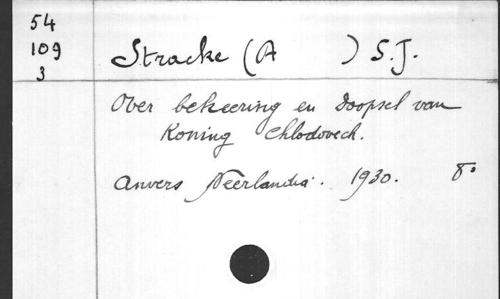 54
109
3
Stracke (A ) S.J.
Over bekeering en Doopsel van
Koning Chlodovech.
Anvers Neerlandia. 1930. 8°